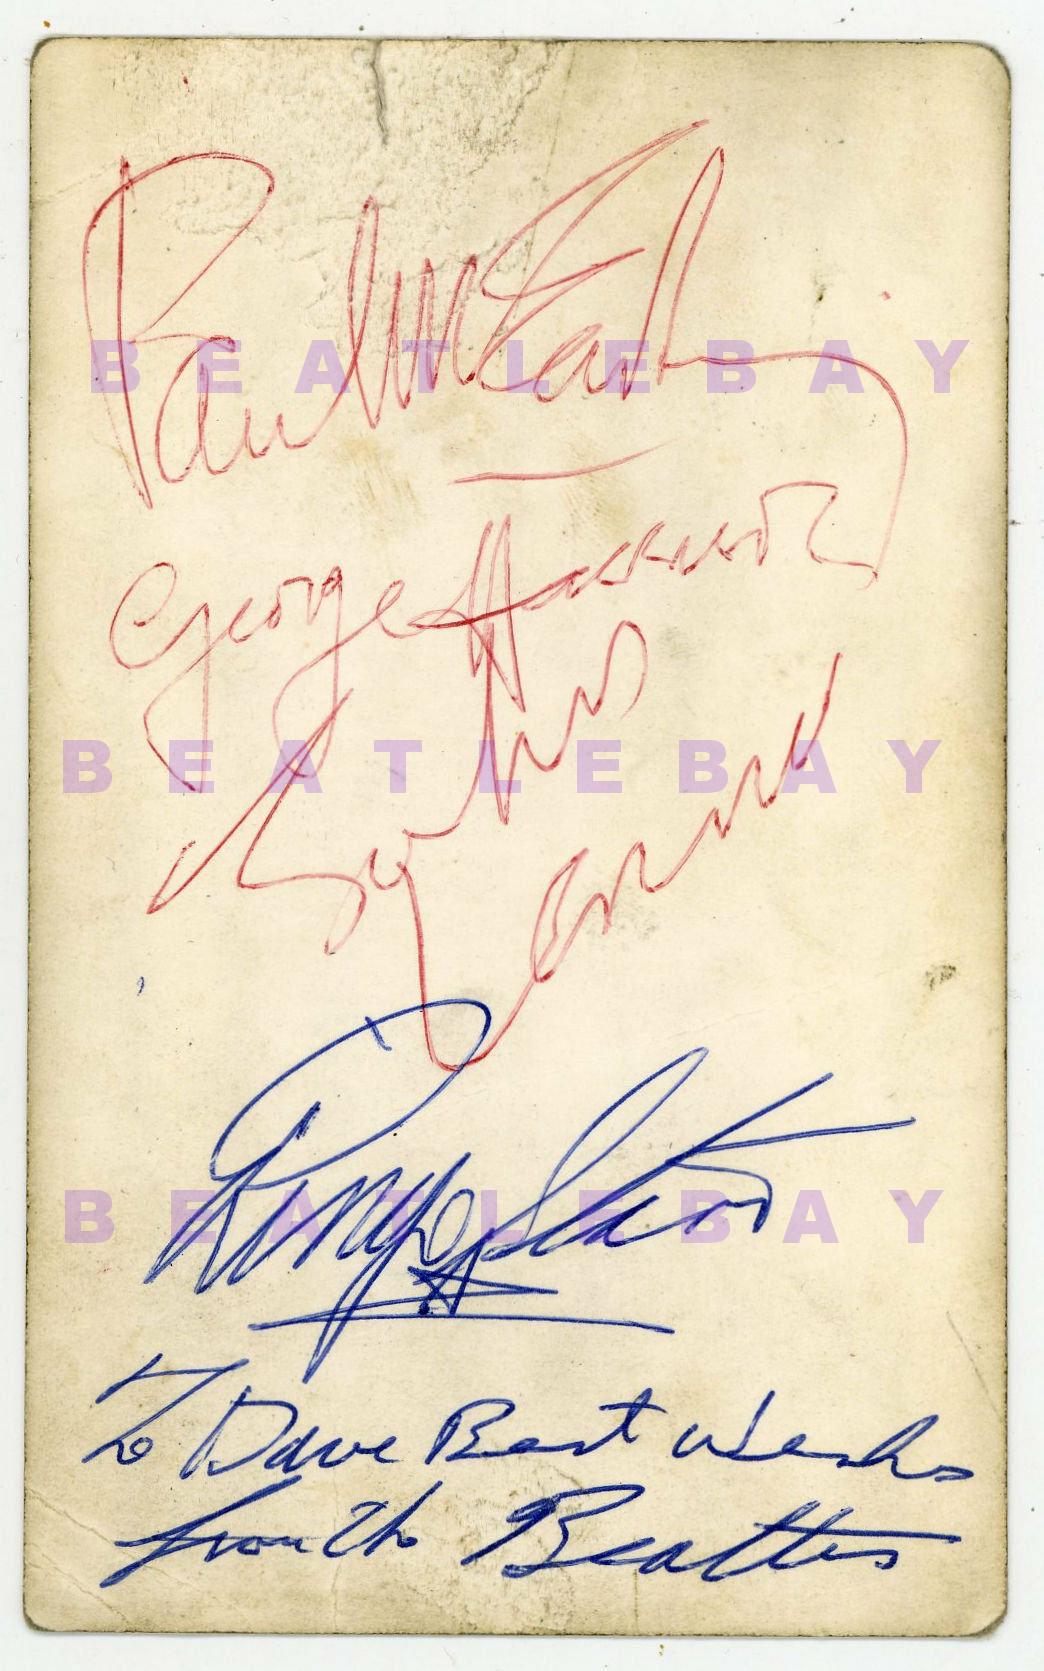 Paul McCartney
BEATLEBAY
George Harrison
John Lennon
BEATLEBAY
Ringo Starr
BEATLEBAY
To Dave Best Wishes
from the Beatles